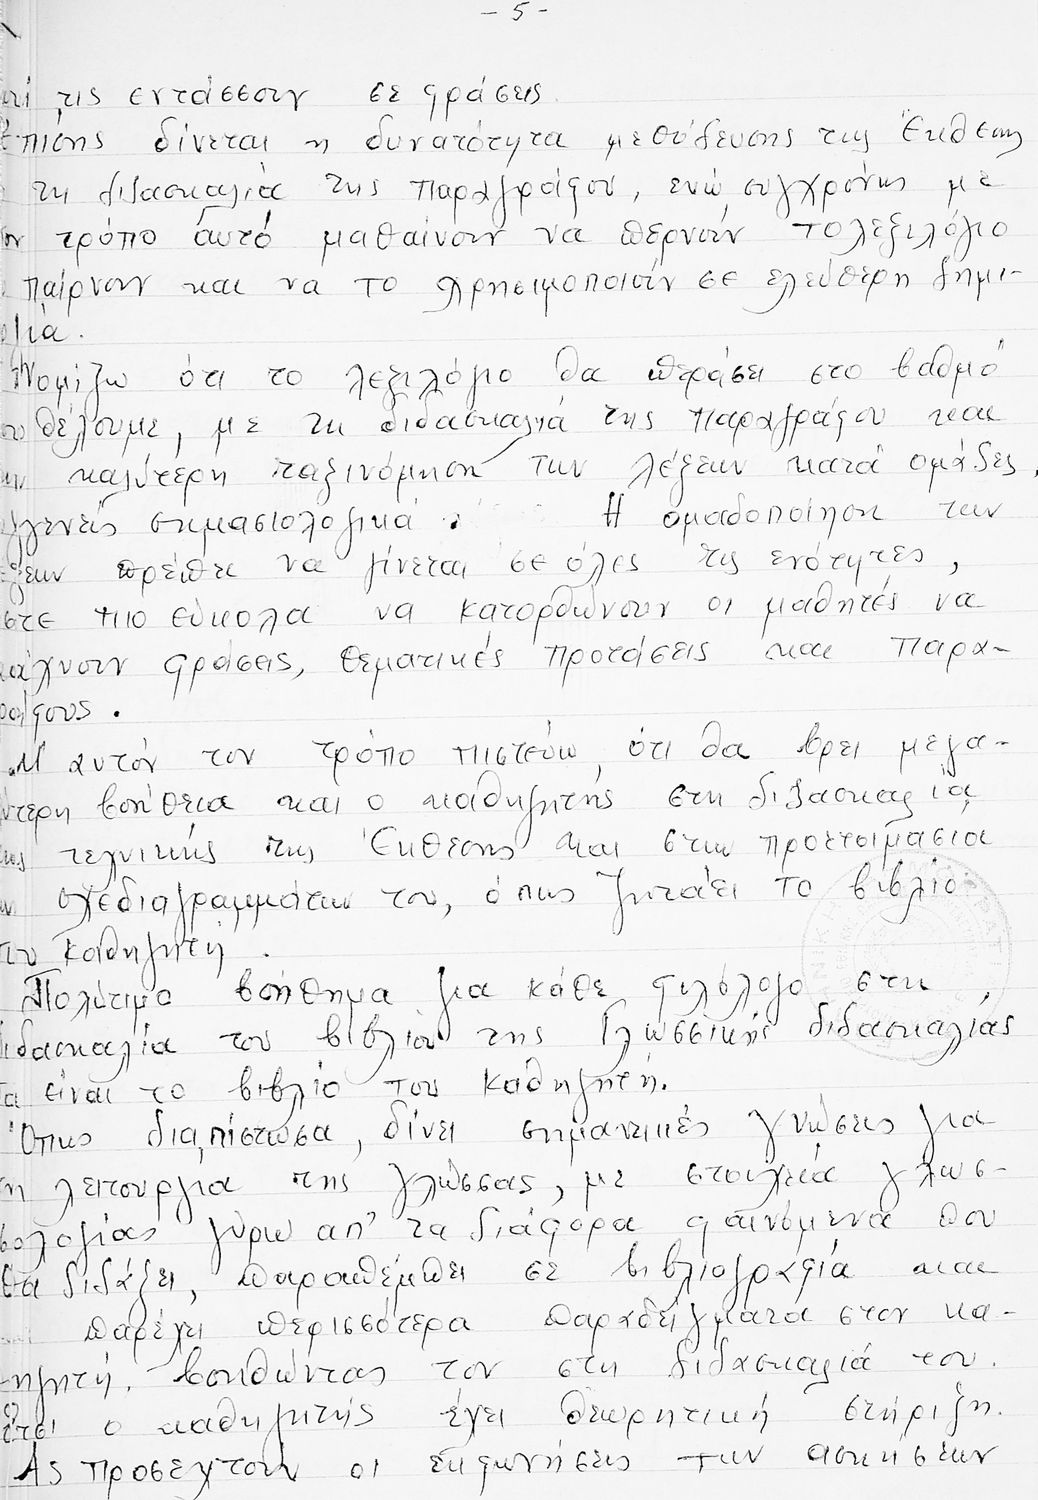 - 5 -
τις εντάσσουν σε φράσεις.
Επίσης δίνεται η δυνατότητα μεθόδευσης της Έκθεσης
τη διδασκαλία της παραγράφου, ενώ συγχρόνως με
τρόπο αυτό μαθαίνουν να περνούν το λεξιλόγιο
παίρνουν και να το χρησιμοποιούν σε ελεύθερη δημι-
Νομίζω ότι το λεξιλόγιο θα περάσει στο βαθμό
θέλουμε, με τη διδασκαλία της παραγράφου και
καλύτερη ταξινόμηση των λέξεων κατά ομάδες,
σημασιολογικά. Η ομαδοποίηση των
πρέπει να γίνεται σε όλες τις ενότητες,
πιο εύκολα να κατορθώνουν οι μαθητές να
φράσεις, θεματικές προτάσεις και παρα-
Μ' αυτόν τον τρόπο πιστεύω, ότι θα βρει μεγα-
βοήθεια και ο καθηγητής στη διδασκαλία
τεχνικής της Έκθεσης και στην προετοιμασία
σχεδιαγραμμάτων του, όπως ζητάει το βιβλίο
του καθηγητή.
Πολύτιμο βοήθημα για κάθε φιλόλογο στη
διδασκαλία του βιβλίου της Γλωσσικής διδασκαλίας
είναι το βιβλίο του καθηγητή.
Όπως διαπίστωσα, δίνει σημαντικές γνώσεις για
τη λειτουργία της γλώσσας, με στοιχεία γλωσ-
σολογίας γύρω απ' τα διάφορα φαινόμενα που
θα διδάξει, παραπέμπει σε βιβλιογραφία και
παρέχει περισσότερα παραδείγματα στον κα-
θηγητή, βοηθώντας τον στη διδασκαλία του.
Έτσι ο καθηγητής έχει θεωρητική στήριξη.
Ας προσεχτούν οι εκφωνήσεις των ασκήσεων